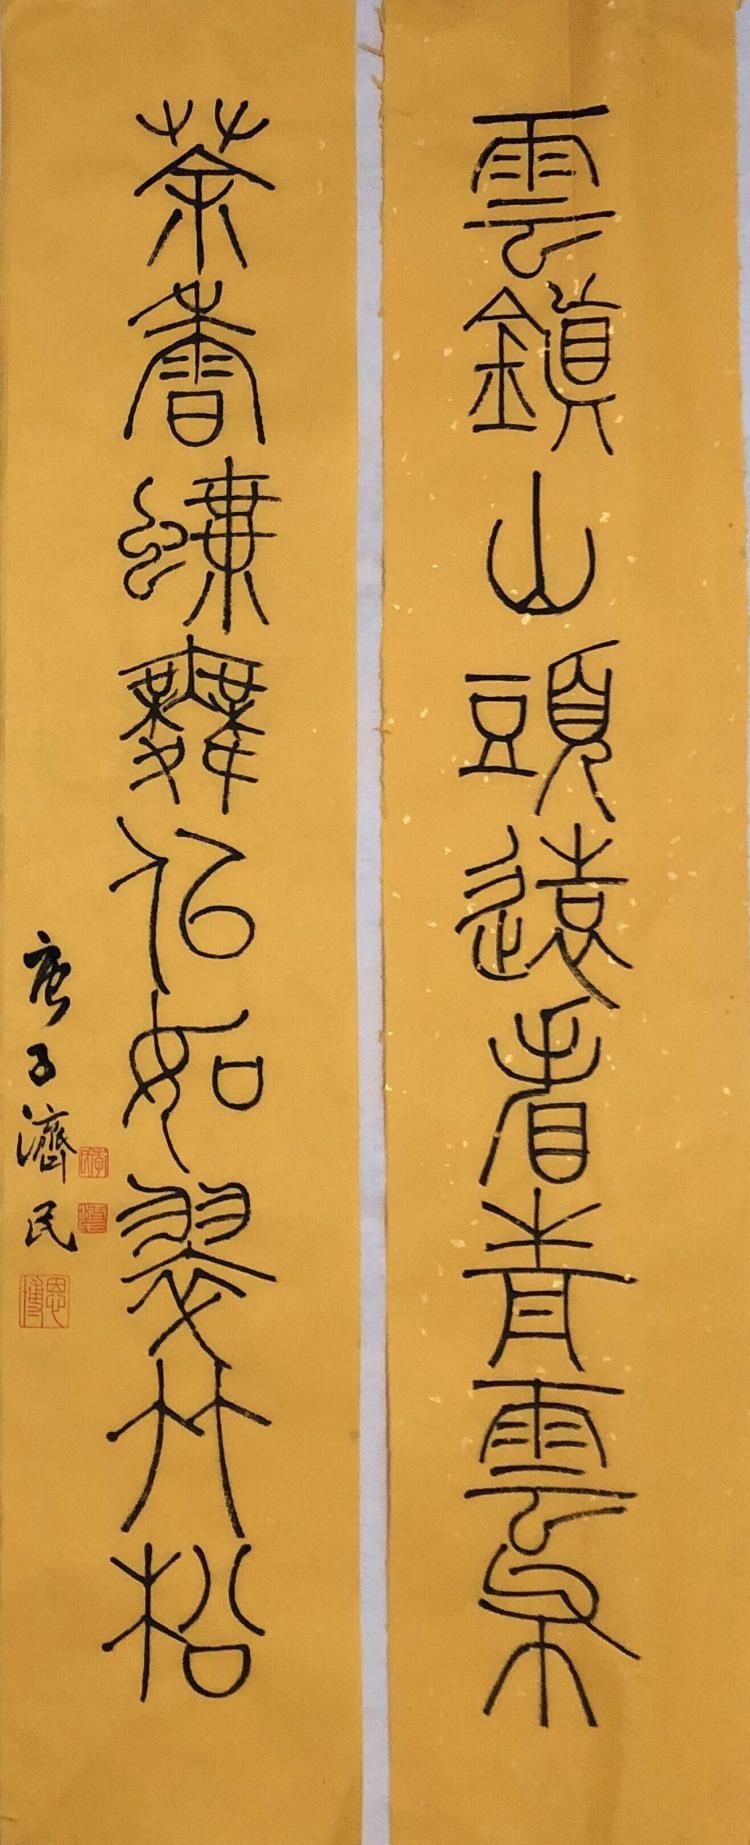 雲鎖山頭遠看青雲朵
茶香蝶舞似如翠竹松
庚子濟民